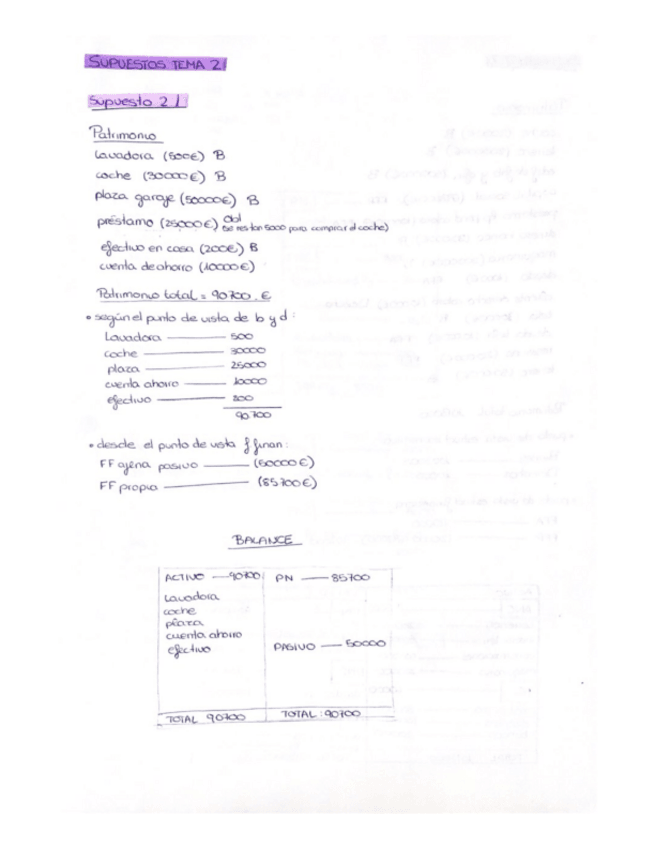 SUPUESTOS TEMA 2
Supuesto 2.1
Patrimonio
Lavadora (500€) B
coche (30000€) B
plaza garaje (50000€) B
préstamo (25000€) Obl
(se restan 5000 para comprar el coche)
efectivo en casa (200€) B
cuenta de ahorro (10000€)
Patrimonio total = 90700 €
• según el punto de vista de b y d:
Lavadora — 500
coche — 30000
plaza — 25000
cuenta ahorro — 10000
efectivo — 200
90 700
• desde el punto de vista f finan:
FF ajena pasivo — (50000€)
FF propia — (85700€)
BALANCE
ACTIVO — 90700 PN — 85700
Lavadora
coche
plaza
cuenta ahorro
efectivo PASIVO — 50000
TOTAL 90700 TOTAL: 90700